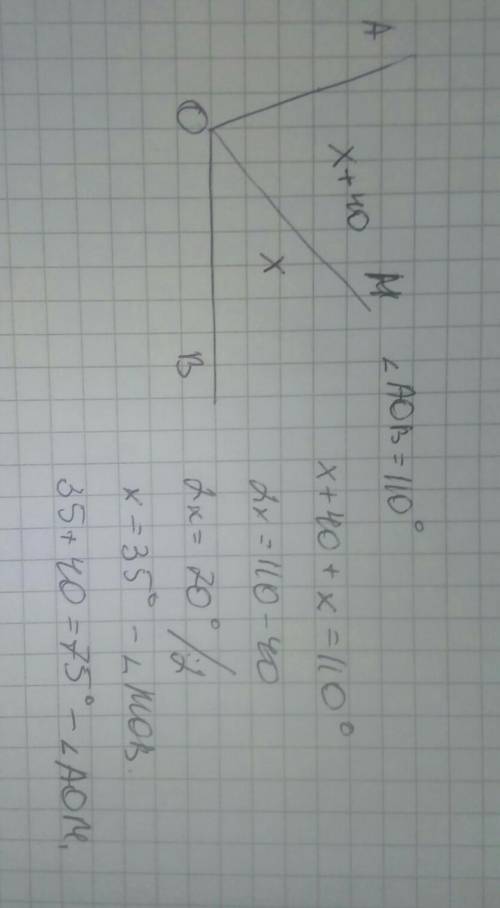 A
x+40
M
O
x
B
∠AOB = 110°
x + 40 + x = 110°
2x = 110 - 40
2x = 70° /2
x = 35° - ∠MOB.
35 + 40 = 75° - ∠AOM.